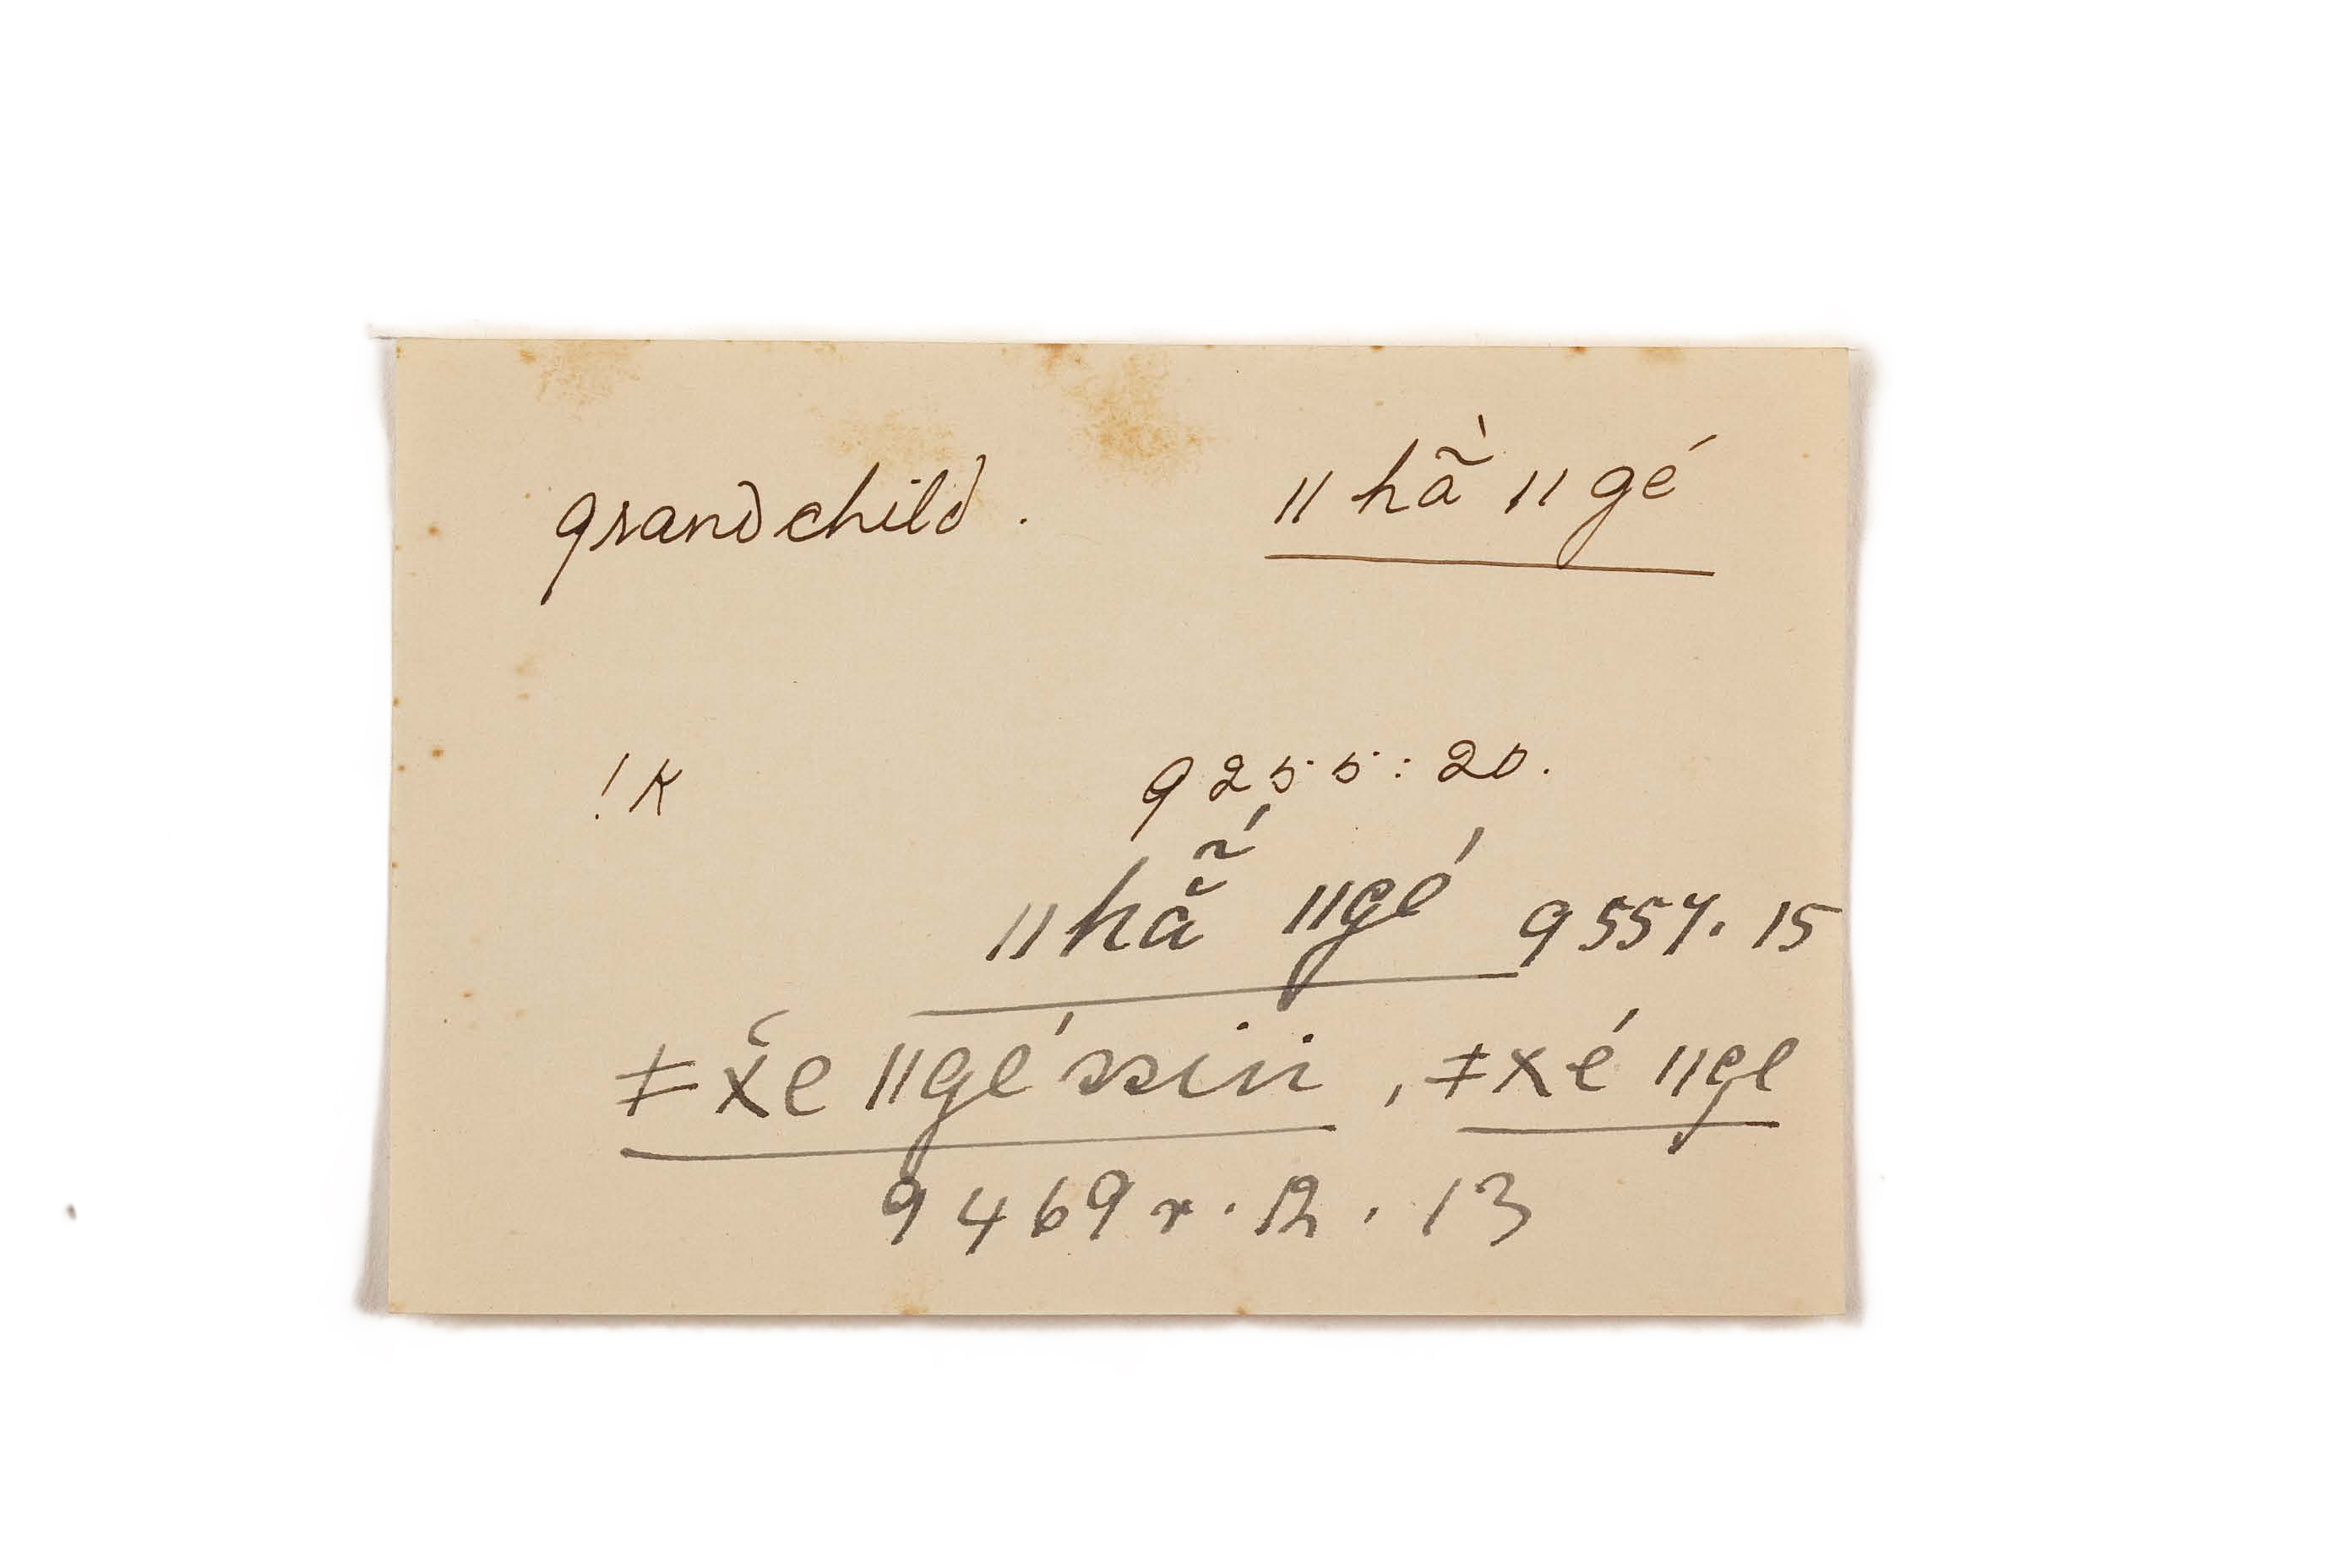 grandchild. ǁhã̀ ǁgé
!k 9255:20.
ǁhã̆́ ǁgé 9557.15
ǂx̆e ǁgéssiń, ǂxé ǁge
9469 r. 12. 13